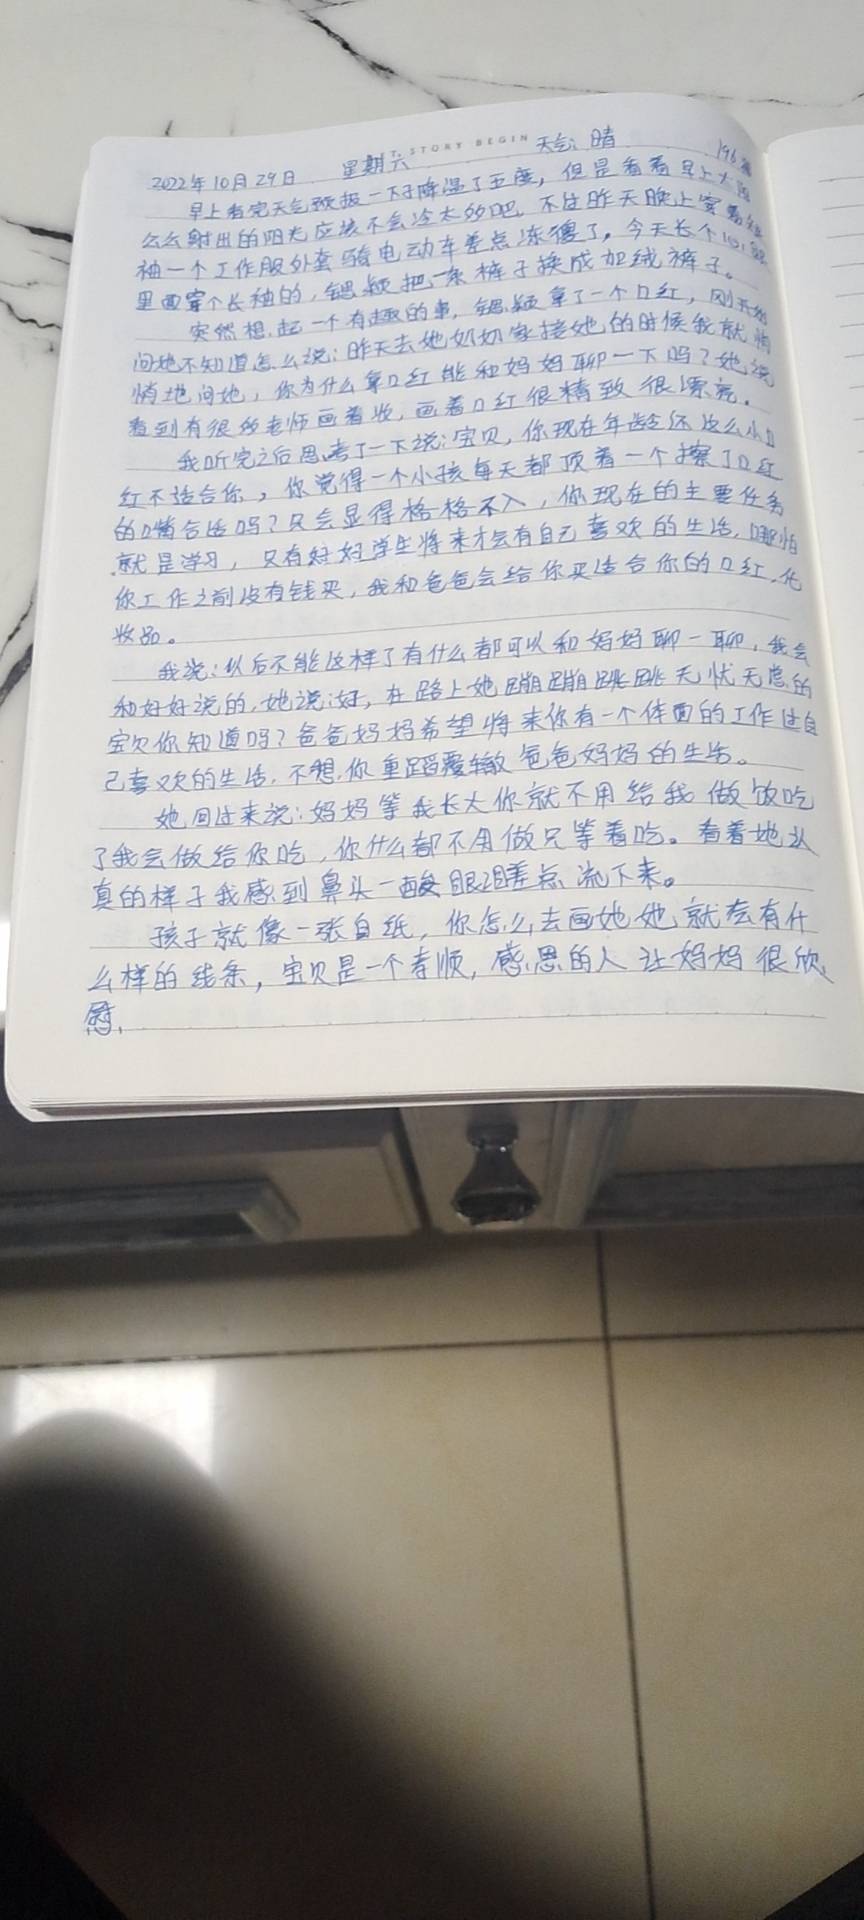 STORY BEGIN
2022年10月29日 星期六 天气:晴 196
早上看完天气预报一下子降温了五度，但是看着早上太阳
公公射出的阳光应该不会冷太多吧,不过昨天晚上穿着短
袖一个工作服外套骑电动车差点冻傻了，今天长个心眼
里面穿个长袖的,锶颖把一条裤子换成加绒裤子。
突然想起一个有趣的事,锶颖拿了一个口红，刚开始
问她不知道怎么说:昨天去她奶奶家接她的时候我就悄
悄地问她，你为什么拿口红能和妈妈聊一下吗?她说
看到有很多老师画着妆,画着口红很精致很漂亮。
我听完之后思考了一下说:宝贝，你现在年龄还这么小口
红不适合你，你觉得一个小孩每天都顶着一个擦了口红
的嘴合适吗?只会显得格格不入，你现在的主要任务
就是学习，只有好好学生将来才会有自己喜欢的生活,哪怕
你工作之前没有钱买，我和爸爸会给你买适合你的口红,化
妆品。
我说:以后不能这样了有什么都可以和妈妈聊一聊，我会
和好好说的,她说:好，在路上她蹦蹦跳跳无忧无虑的
宝贝你知道吗?爸爸妈妈希望将来你有一个体面的工作过自
己喜欢的生活,不想你重蹈覆辙爸爸妈妈的生活。
她回过来说:妈妈等我长大你就不用给我做饭吃
了我会做给你吃,你什么都不用做只等着吃。看着她认
真的样子我感到鼻头一酸眼泪差点流下来。
孩子就像一张白纸，你怎么去画她她就会有什
么样的线条，宝贝是一个孝顺，感恩的人让妈妈很欣
慰,